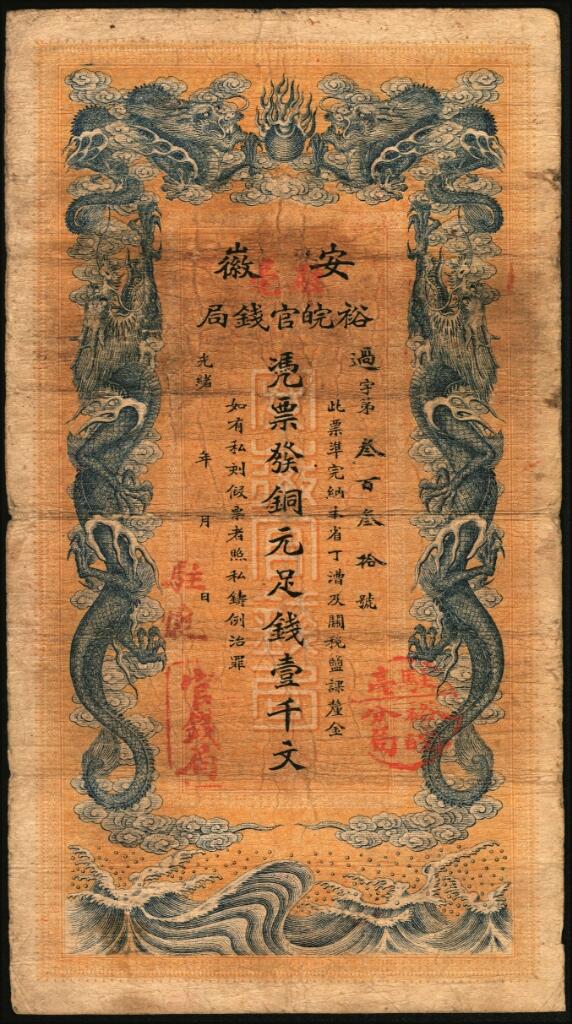 安徽
裕皖官錢局
過字第叄百叁拾號
此票準完納本省丁漕及關稅鹽課釐金
憑票發銅元足錢壹千文
如有私刻假票者照私鑄例治罪
光緒年月日
駐
官錢局
駐裕皖
亳分局